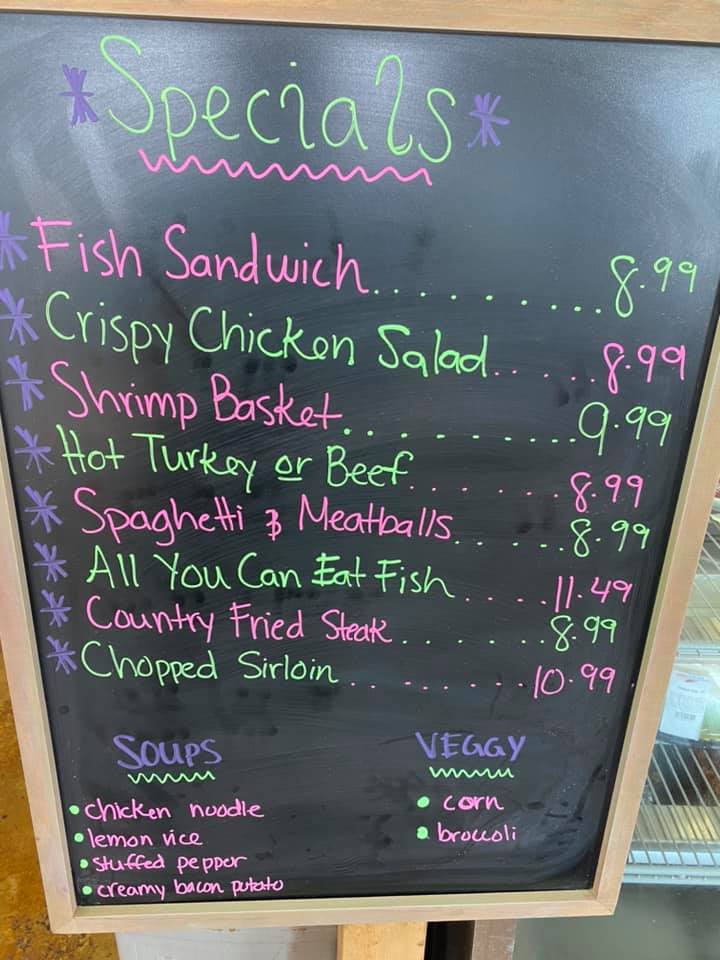 *Specials*
* Fish Sandwich............8.99
* Crispy Chicken Salad.....8.99
* Shrimp Basket...........9.99
* Hot Turkey or Beef.......8.99
* Spaghetti & Meatballs......8.99
* All You Can Eat Fish.....11.49
* Country Fried Steak.......8.99
* Chopped Sirloin........10.99
SOUPS
• chicken noodle
• lemon rice
• stuffed pepper
• creamy bacon potato
VEGGY
• corn
• broccoli